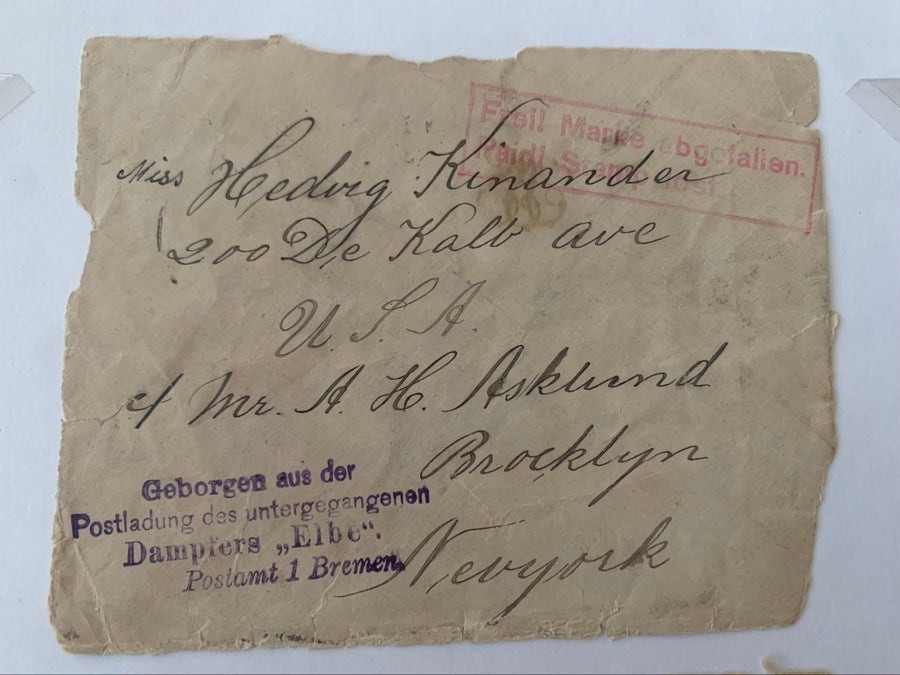 Frei! Marke abgefallen.
Paid! Stamp lost
Miss Hedvig Kinander
200 De Kalb ave
U. S. A.
c/ Mr. A. H. Asklund
Brocklyn
Newyork
Geborgen aus der
Postladung des untergegangenen
Dampfers „Elbe“.
Postamt 1 Bremen.